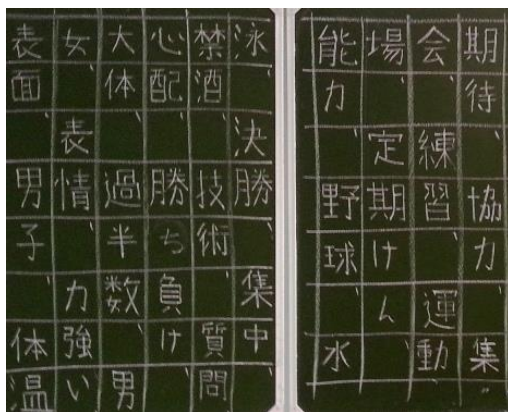 期待、協力、集
会、練習、運動
場、定期けん、
能力、野球、水
泳、決勝、集中、
禁酒、技術、質問
心配、勝ち負け、
大体、過半数、男
女、表情、力強い
表面、男子、体温